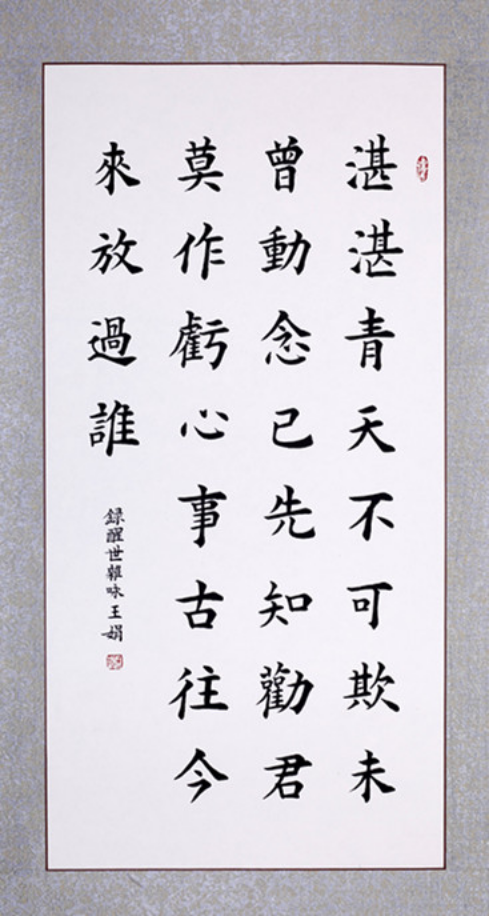 湛湛青天不可欺未
曾動念已先知勸君
莫作虧心事古往今
來放過誰
録醒世雜咏王娟